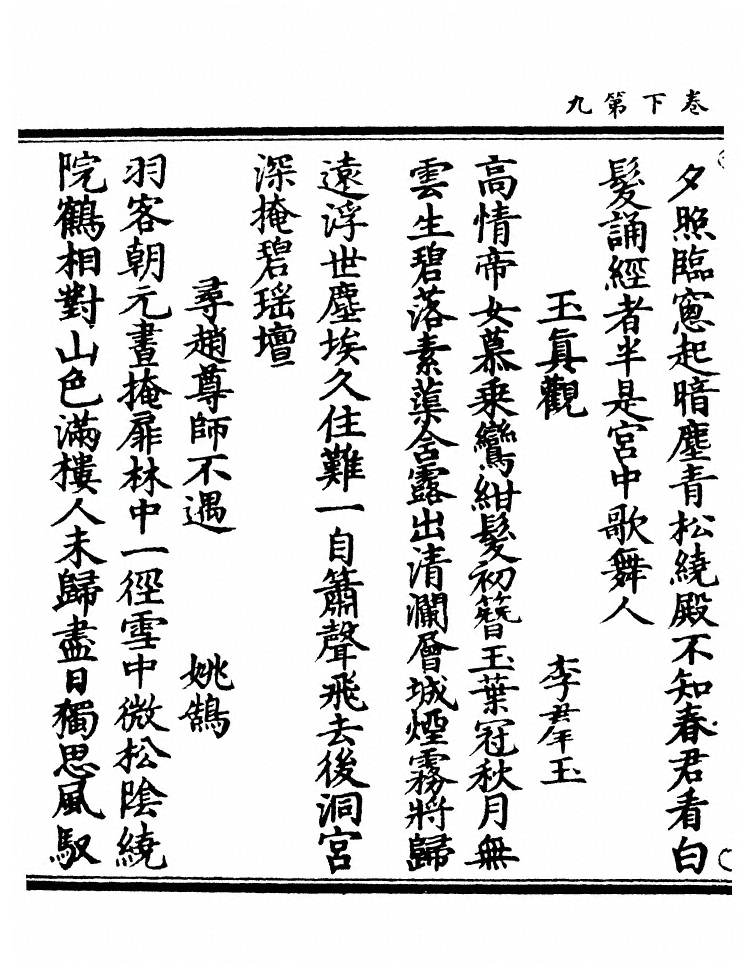 卷下第九
夕照臨窓起暗塵青松繞殿不知春君看白
髮誦經者半是宮中歌舞人
玉眞觀
李羣玉
高情帝女慕乘鸞紺髮初簪玉葉冠秋月無
雲生碧落素蕖含露出清瀾層城煙霧將歸
遠浮世塵埃久住難一自簫聲飛去後洞宮
深掩碧瑶壇
尋趙尊師不遇
姚鵠
羽客朝元晝掩扉林中一徑雪中微松陰繞
院鶴相對山色滿樓人未歸盡日獨思風馭